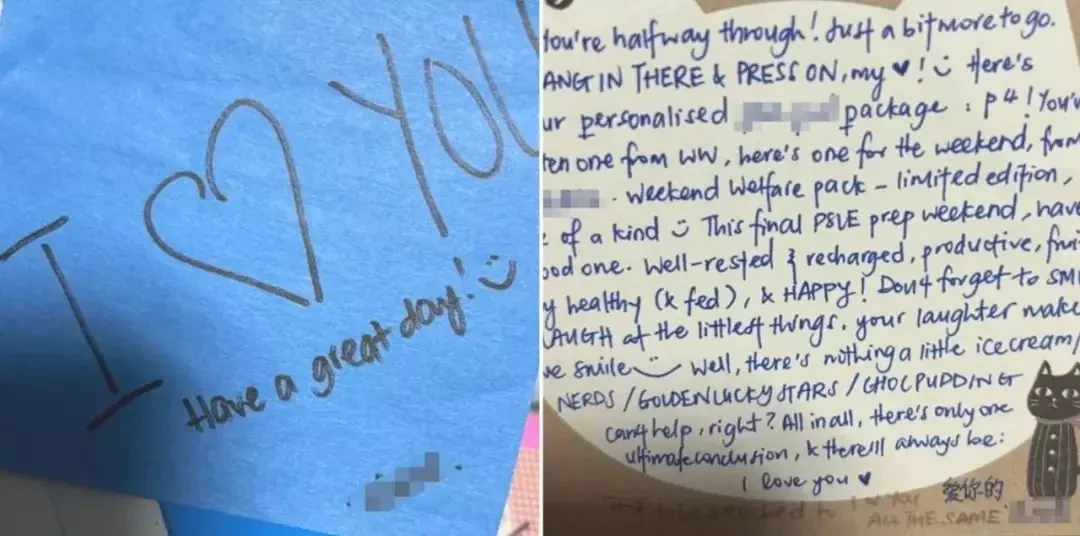 I ♡ YOU
Have a great day! :)
You're halfway through! Just a bit more to go.
ANG IN THERE & PRESS ON, my ♥! :) Here's
ur personalised package : p4! You'v
ten one from WW, here's one for the weekend, from
. Weekend Welfare pack – limited edition,
of a kind :) This final PSLE prep weekend, have
ood one. Well-rested & recharged, productive, frui
y healthy (& fed), & HAPPY! Don't forget to SMI
AUGH at the littlest things. your laughter make
me smile :) Well, there's nothing a little ice cream/
NERDS / GOLDEN LUCKY STARS / CHOC PUDDING
can't help, right? All in all, there's only one
ultimate conclusion, & there'll always be:
I love you ♥
爱你的
ALL THE SAME